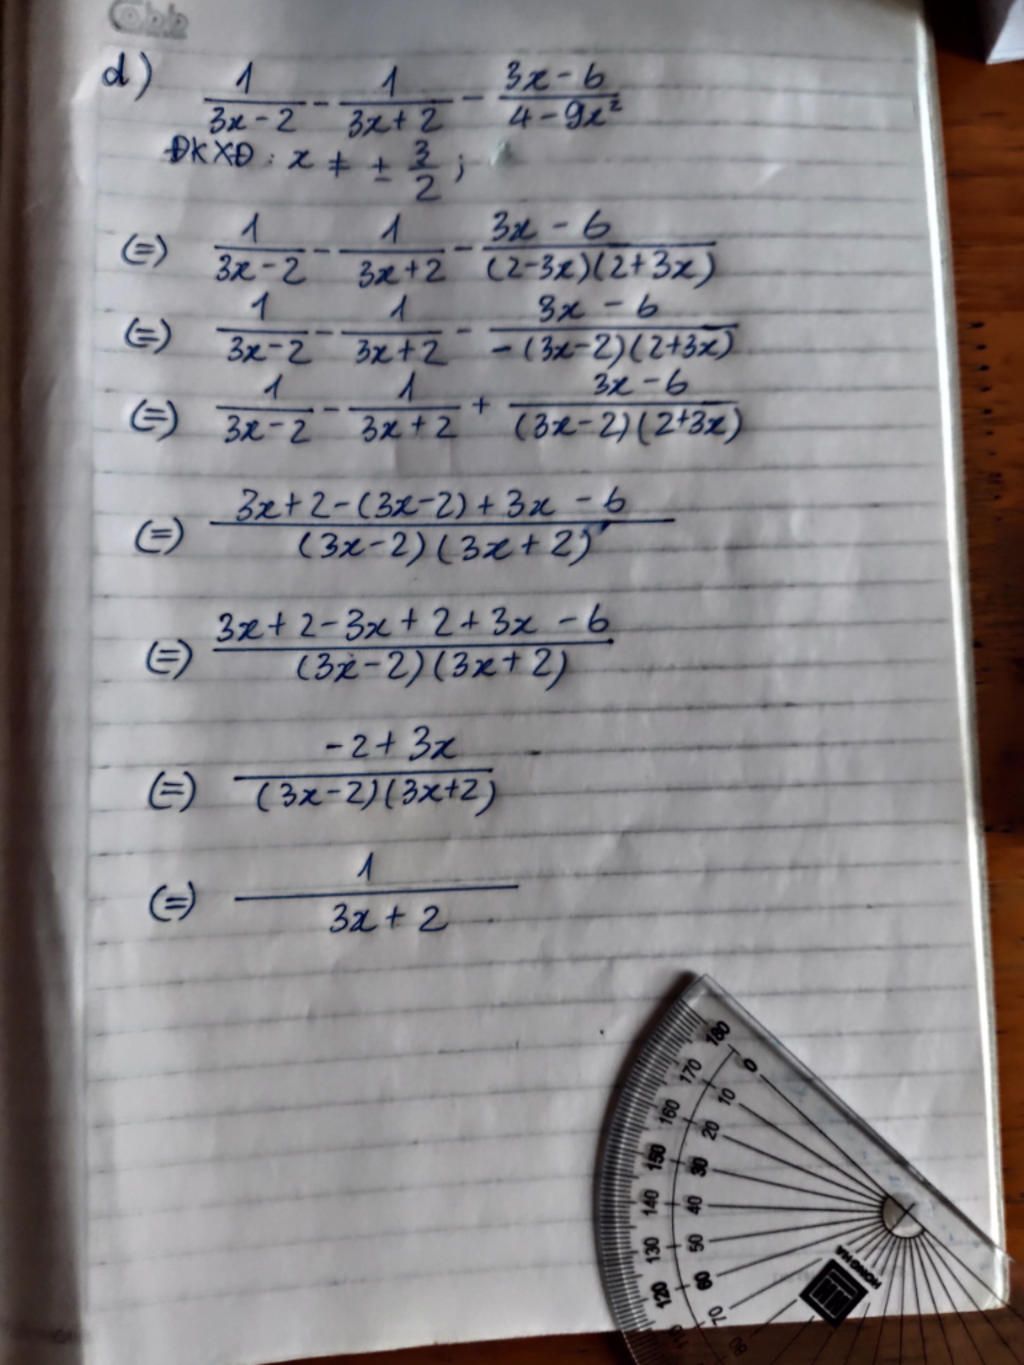 Cobb
d) 1/(3x - 2) - 1/(3x + 2) - (3x - 6)/(4 - 9x²)
ĐKXĐ: x ≠ ± 3/2 ;
(=) 1/(3x - 2) - 1/(3x + 2) - (3x - 6)/((2 - 3x)(2 + 3x))
(=) 1/(3x - 2) - 1/(3x + 2) - (3x - 6)/(-(3x - 2)(2 + 3x))
(=) 1/(3x - 2) - 1/(3x + 2) + (3x - 6)/((3x - 2)(2 + 3x))
(=) (3x + 2 - (3x - 2) + 3x - 6)/((3x - 2)(3x + 2))
(=) (3x + 2 - 3x + 2 + 3x - 6)/((3x - 2)(3x + 2))
(=) (-2 + 3x)/((3x - 2)(3x + 2))
(=) 1/(3x + 2)
180 170 160 150 140 130 120
0 10 20 30 40 50 60 70 80
HONG HA